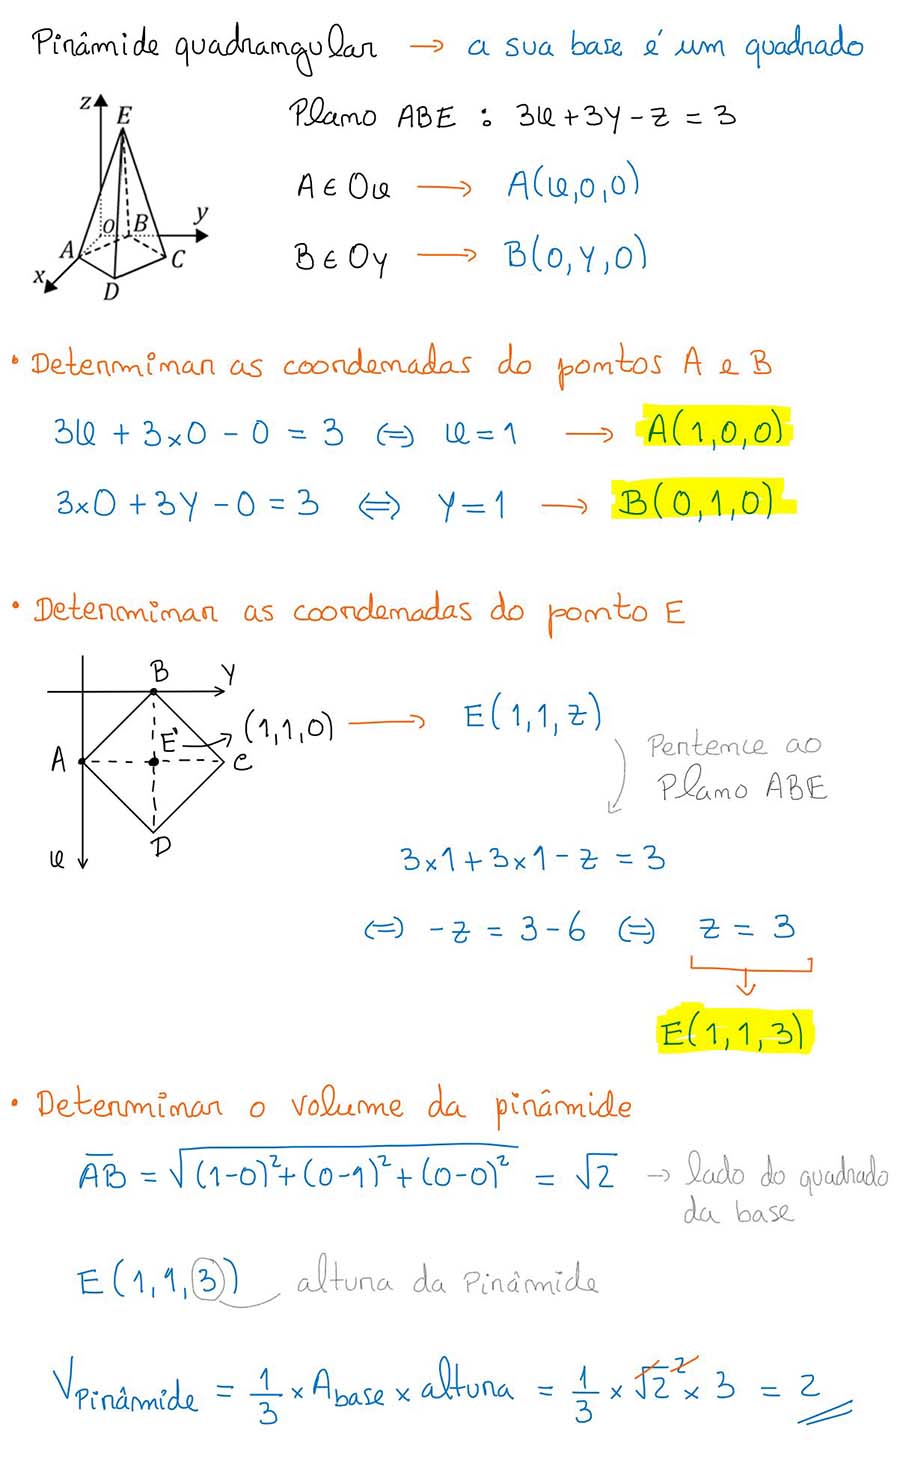 Pirâmide quadrangular → a sua base é um quadrado
z
E
O
B
y
A
C
x
D
Plano ABE : 3x+3y-z = 3
A ∈ Ox → A(x,0,0)
B ∈ Oy → B(0,y,0)
• Determinar as coordenadas do pontos A e B
3x + 3×0 - 0 = 3 ⇔ x=1 → A(1,0,0)
3×0 + 3y - 0 = 3 ⇔ y=1 → B(0,1,0)
• Determinar as coordenadas do ponto E
B
y
E' → (1,1,0) → E(1,1,z)
A
C
Pertence ao
Plano ABE
D
x
3×1 + 3×1 - z = 3
⇔ -z = 3-6 ⇔ z = 3
E(1,1,3)
• Determinar o volume da pirâmide
AB̅ = √((1-0)²+(0-1)²+(0-0)²) = √2 → lado do quadrado
da base
E(1,1,3) altura da Pirâmide
V Pirâmide = 1/3 × A base × altura = 1/3 × √2² × 3 = 2